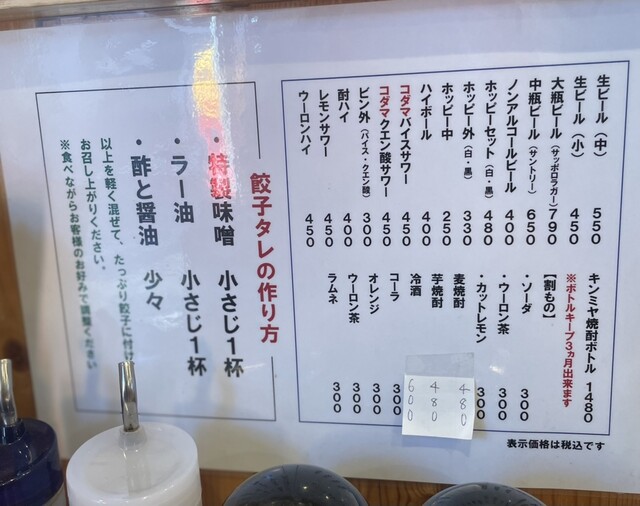 生ビール（中） 550
生ビール（小） 450
大瓶ビール（サッポロラガー） 790
中瓶ビール（サントリー） 650
ノンアルコールビール 400
ホッピーセット（白・黒） 480
ホッピー外（白・黒） 330
ホッピー中 250
ハイボール 400
コダマバイスサワー 450
コダマクエン酸サワー 450
ビン外（バイス・クエン酸） 300
酎ハイ 400
レモンサワー 450
ウーロンハイ 450
キンミヤ焼酎ボトル 1480
※ボトルキープ3ヵ月出来ます
【割もの】
・ソーダ 300
・ウーロン茶 300
・カットレモン 300
麦焼酎 480
芋焼酎 480
冷酒 600
コーラ 300
オレンジ 300
ウーロン茶 300
ラムネ 300
表示価格は税込です
餃子タレの作り方
・特製味噌 小さじ1杯
・ラー油 小さじ1杯
・酢と醤油 少々
以上を軽く混ぜて、たっぷり餃子に付け
お召し上がりください。
※食べながらお客様のお好みで調整ください